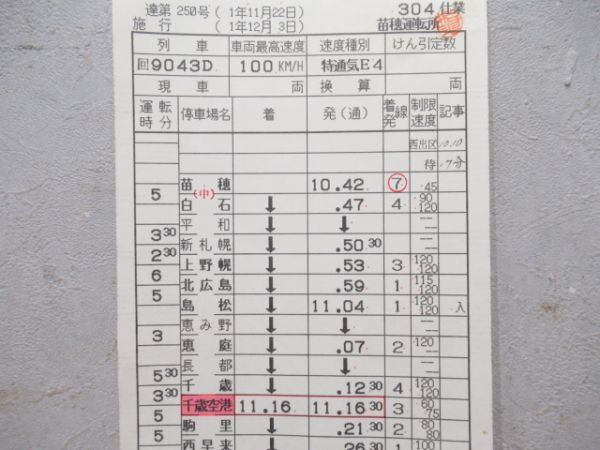 達第250号 ( 1年11月22日)
304仕業
施行 ( 1年12月 3日)
苗穂運転所
列車 車両最高速度 速度種別 けん引定数
回9043D 100KM/H 特通気E4
現車 両 換算 両
運転時分 停車場名 着 発(通) 着発線 制限速度 記事
西出区 10.10
待 17分
苗穂 10.42 7 45
5 (中)
白石 ↓ .47 4 90 120
平和 ↓ ↓
3 30
新札幌 ↓ .50 30
2 30
上野幌 ↓ .53 3 120 120
6
北広島 ↓ .59 1 115 120
5
島松 ↓ 11.04 1 120 120 入
恵み野 ↓ ↓
3
恵庭 ↓ .07 2 120
長都 ↓ ↓
5 30
千歳 ↓ .12 30 4 120 120
3 30
千歳空港 11.16 11.16 30 3 60 75
5
駒里 ↓ .21 30 2 80 80
5
西早来 ↓ .26 30 1